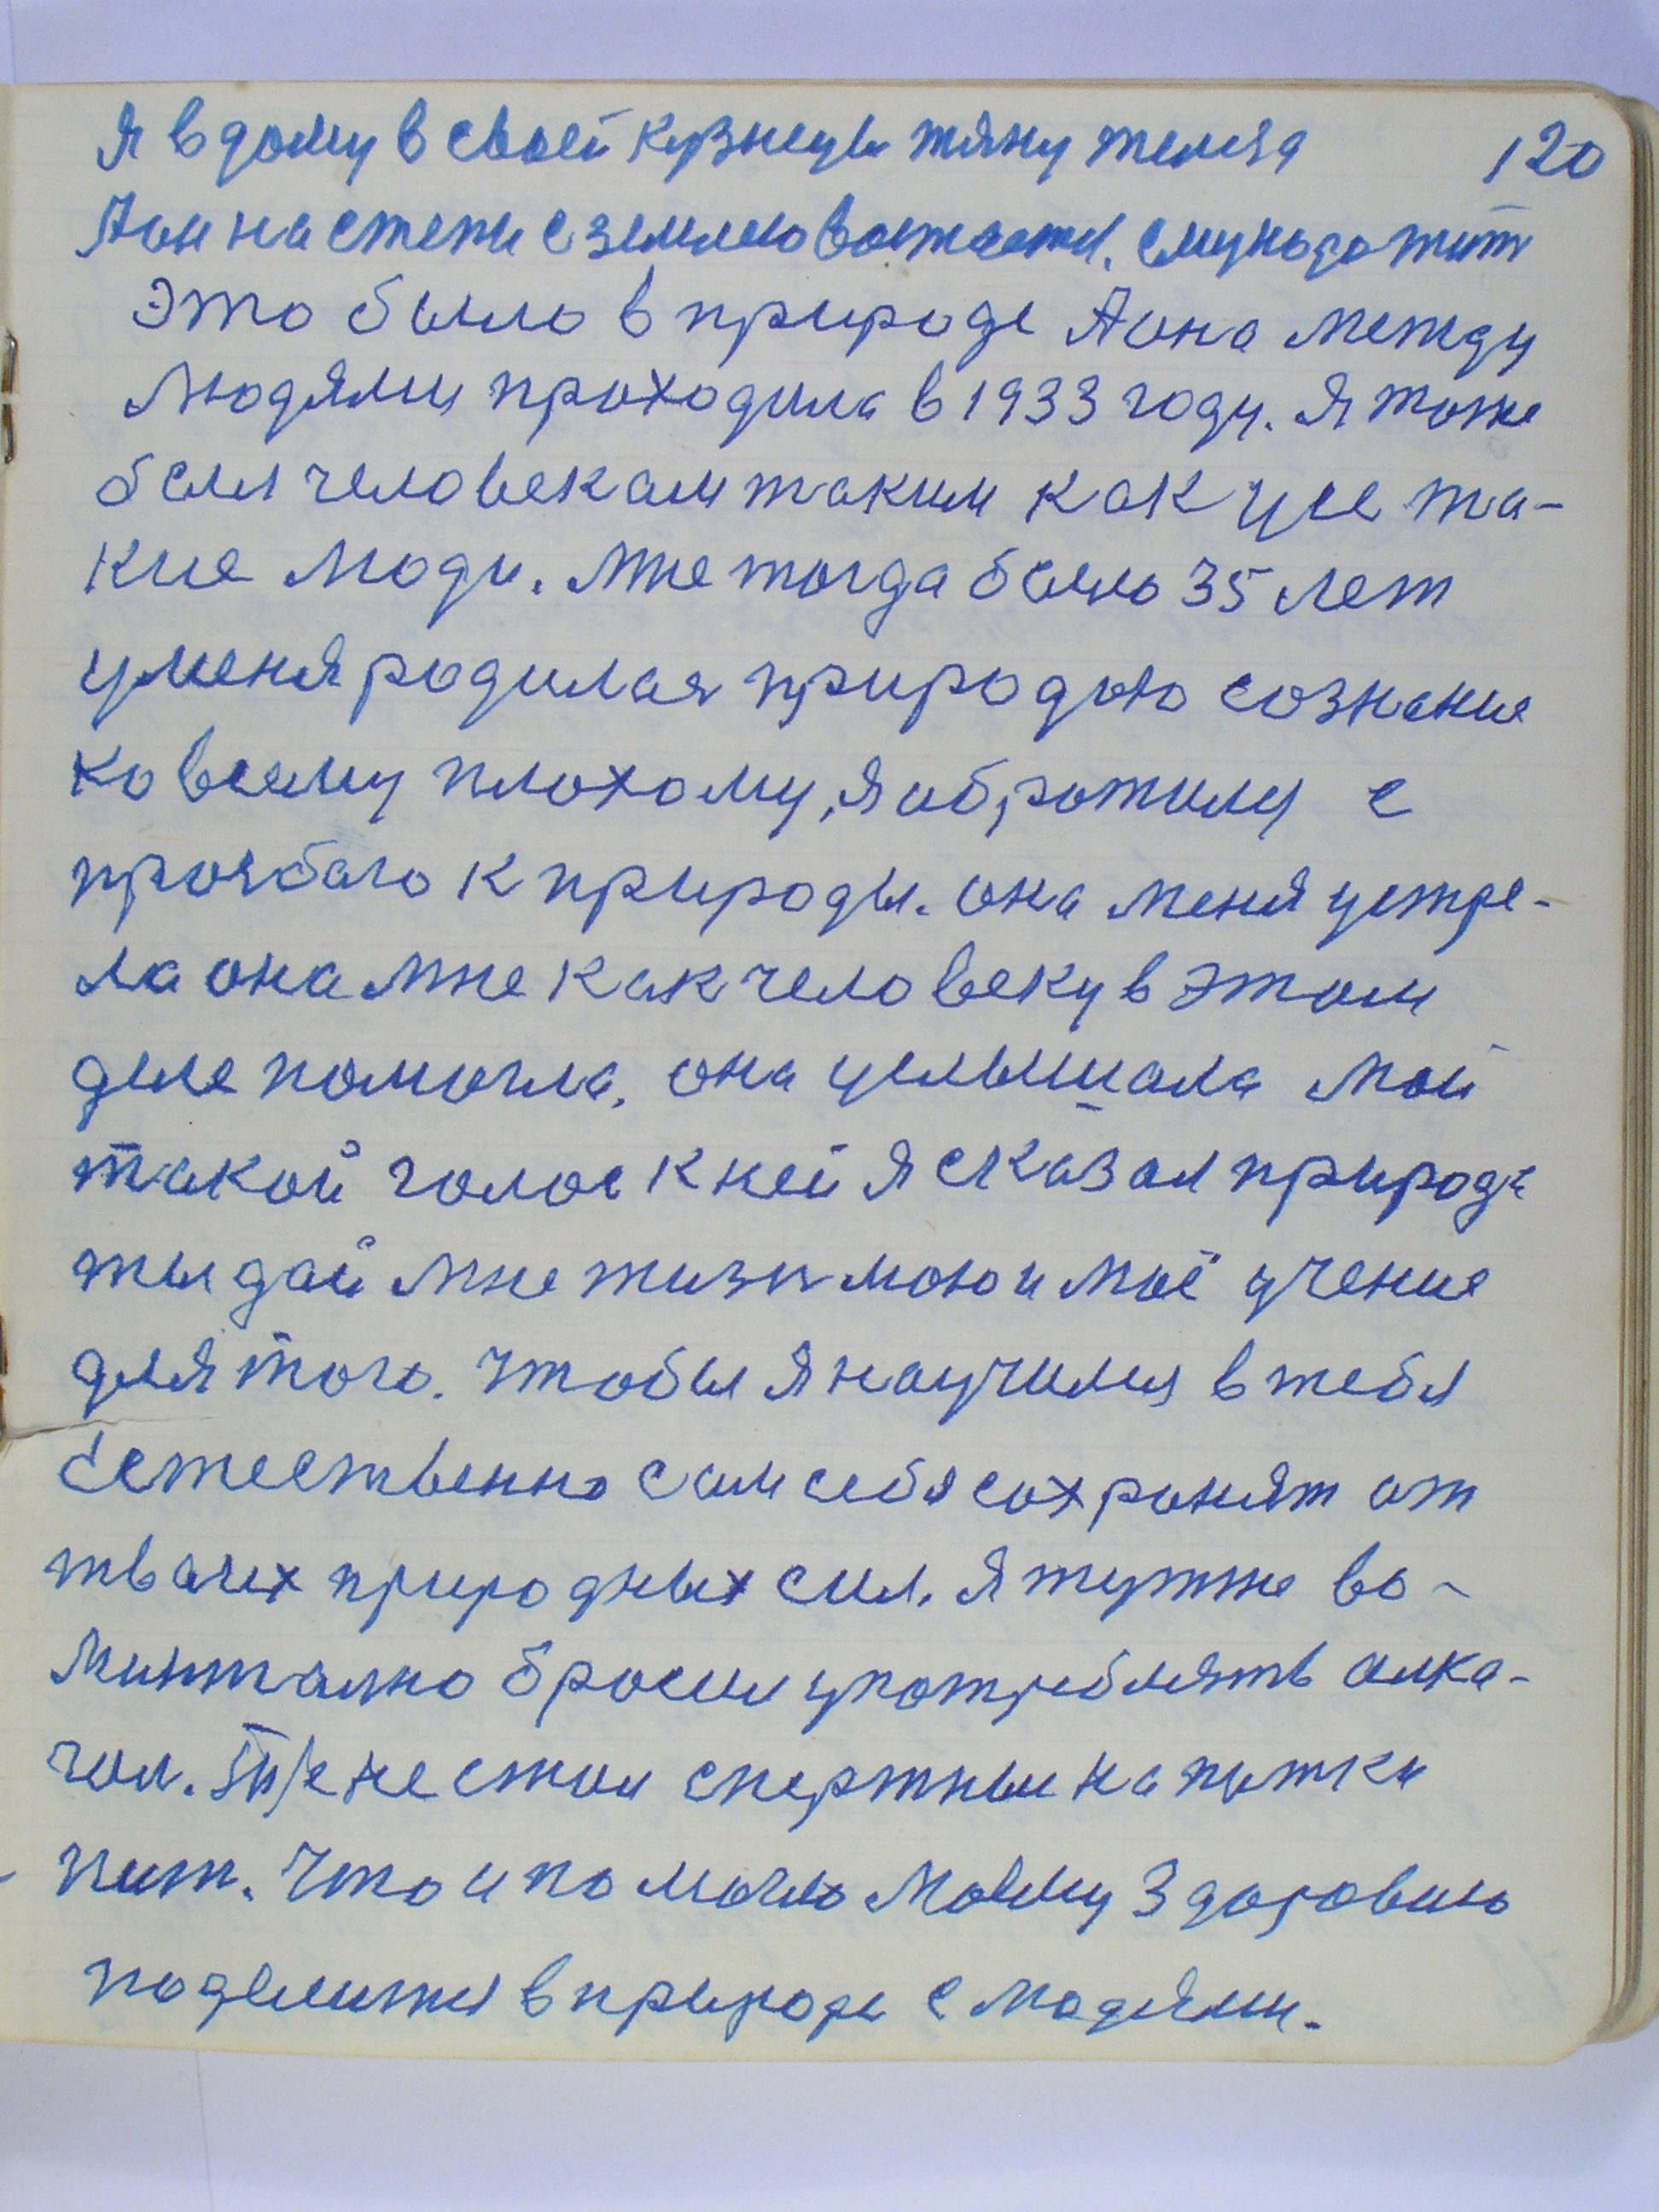 Я в дому в своей кузнецы тяну 120
Аон на степи с землею
Это было в природе Аона между
людями проходила в 1933 году. Я тоже
был человекам таким как усе та-
кие люди. Мне тогда было 35 лет
уменя родилася природою сознание
ко всему плохому, я обротился с
прозбаю к природы. она меня устре-
ла она мне как человеку в этом
деле помогла, она услышала мой
такой голос к ней я сказал природе
ты дай мне жизн мою и моё учение
для того. чтобы я научился в тебя
Естественно сам себя сохронят от
твоих природных сил. я тутже во-
минтално бросил употреблять алка-
гол. не стал спертные напитки
пит. что и помогло моему здоровию
поделится в природе с людями.